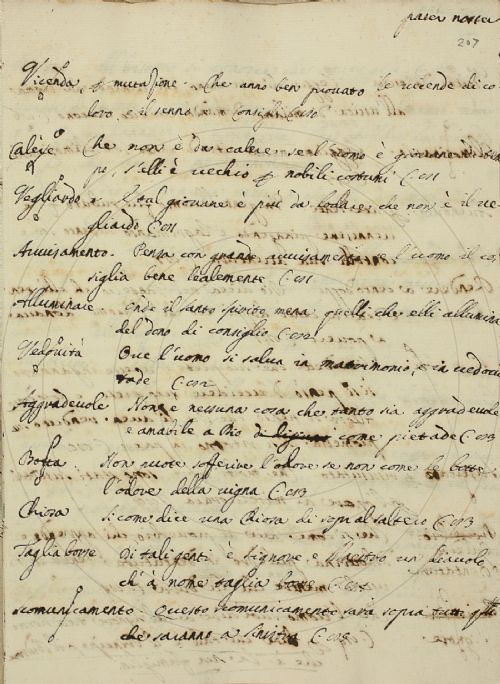 pater noster
207
Vicenda, p mutazione. Che anno ben provato le vicende di co
loro, e il senno, e i consigli loro
Calere Che non è da calere se l'uomo è giovane
s'elli è vecchio p nobili costumi C. 151
Vegliardo e tal giovane è più da lodare, che non è il ve
gliardo C. 151
Avvisamento. Pensa con grande avvisamento se l'uomo il co
siglia bene lealemente C. 151
Alluminare Onde il santo spirito mena quelli che elli allumina
del dono di consiglio C. 152
Vedovità Ove l'uomo si salva in matrimonio, e in vedovi
tade C. 152
Aggradevole Non è nessuna cosa che tanto sia aggradevole
e amabile a Dio come pietade C. 153
Botta. Non puote sofferire l'odore se non come le botte
l'odore della vigna C. 153
Chiosa si come dice una Chiosa di sopra al saltero C. 153
Taglia borse Di tali genti è Signore e Maestro un diavolo
ch'à nome taglia borse
scomunicamento. Questo scomunicamento sarà sopra tutti
che saranno a sinistra